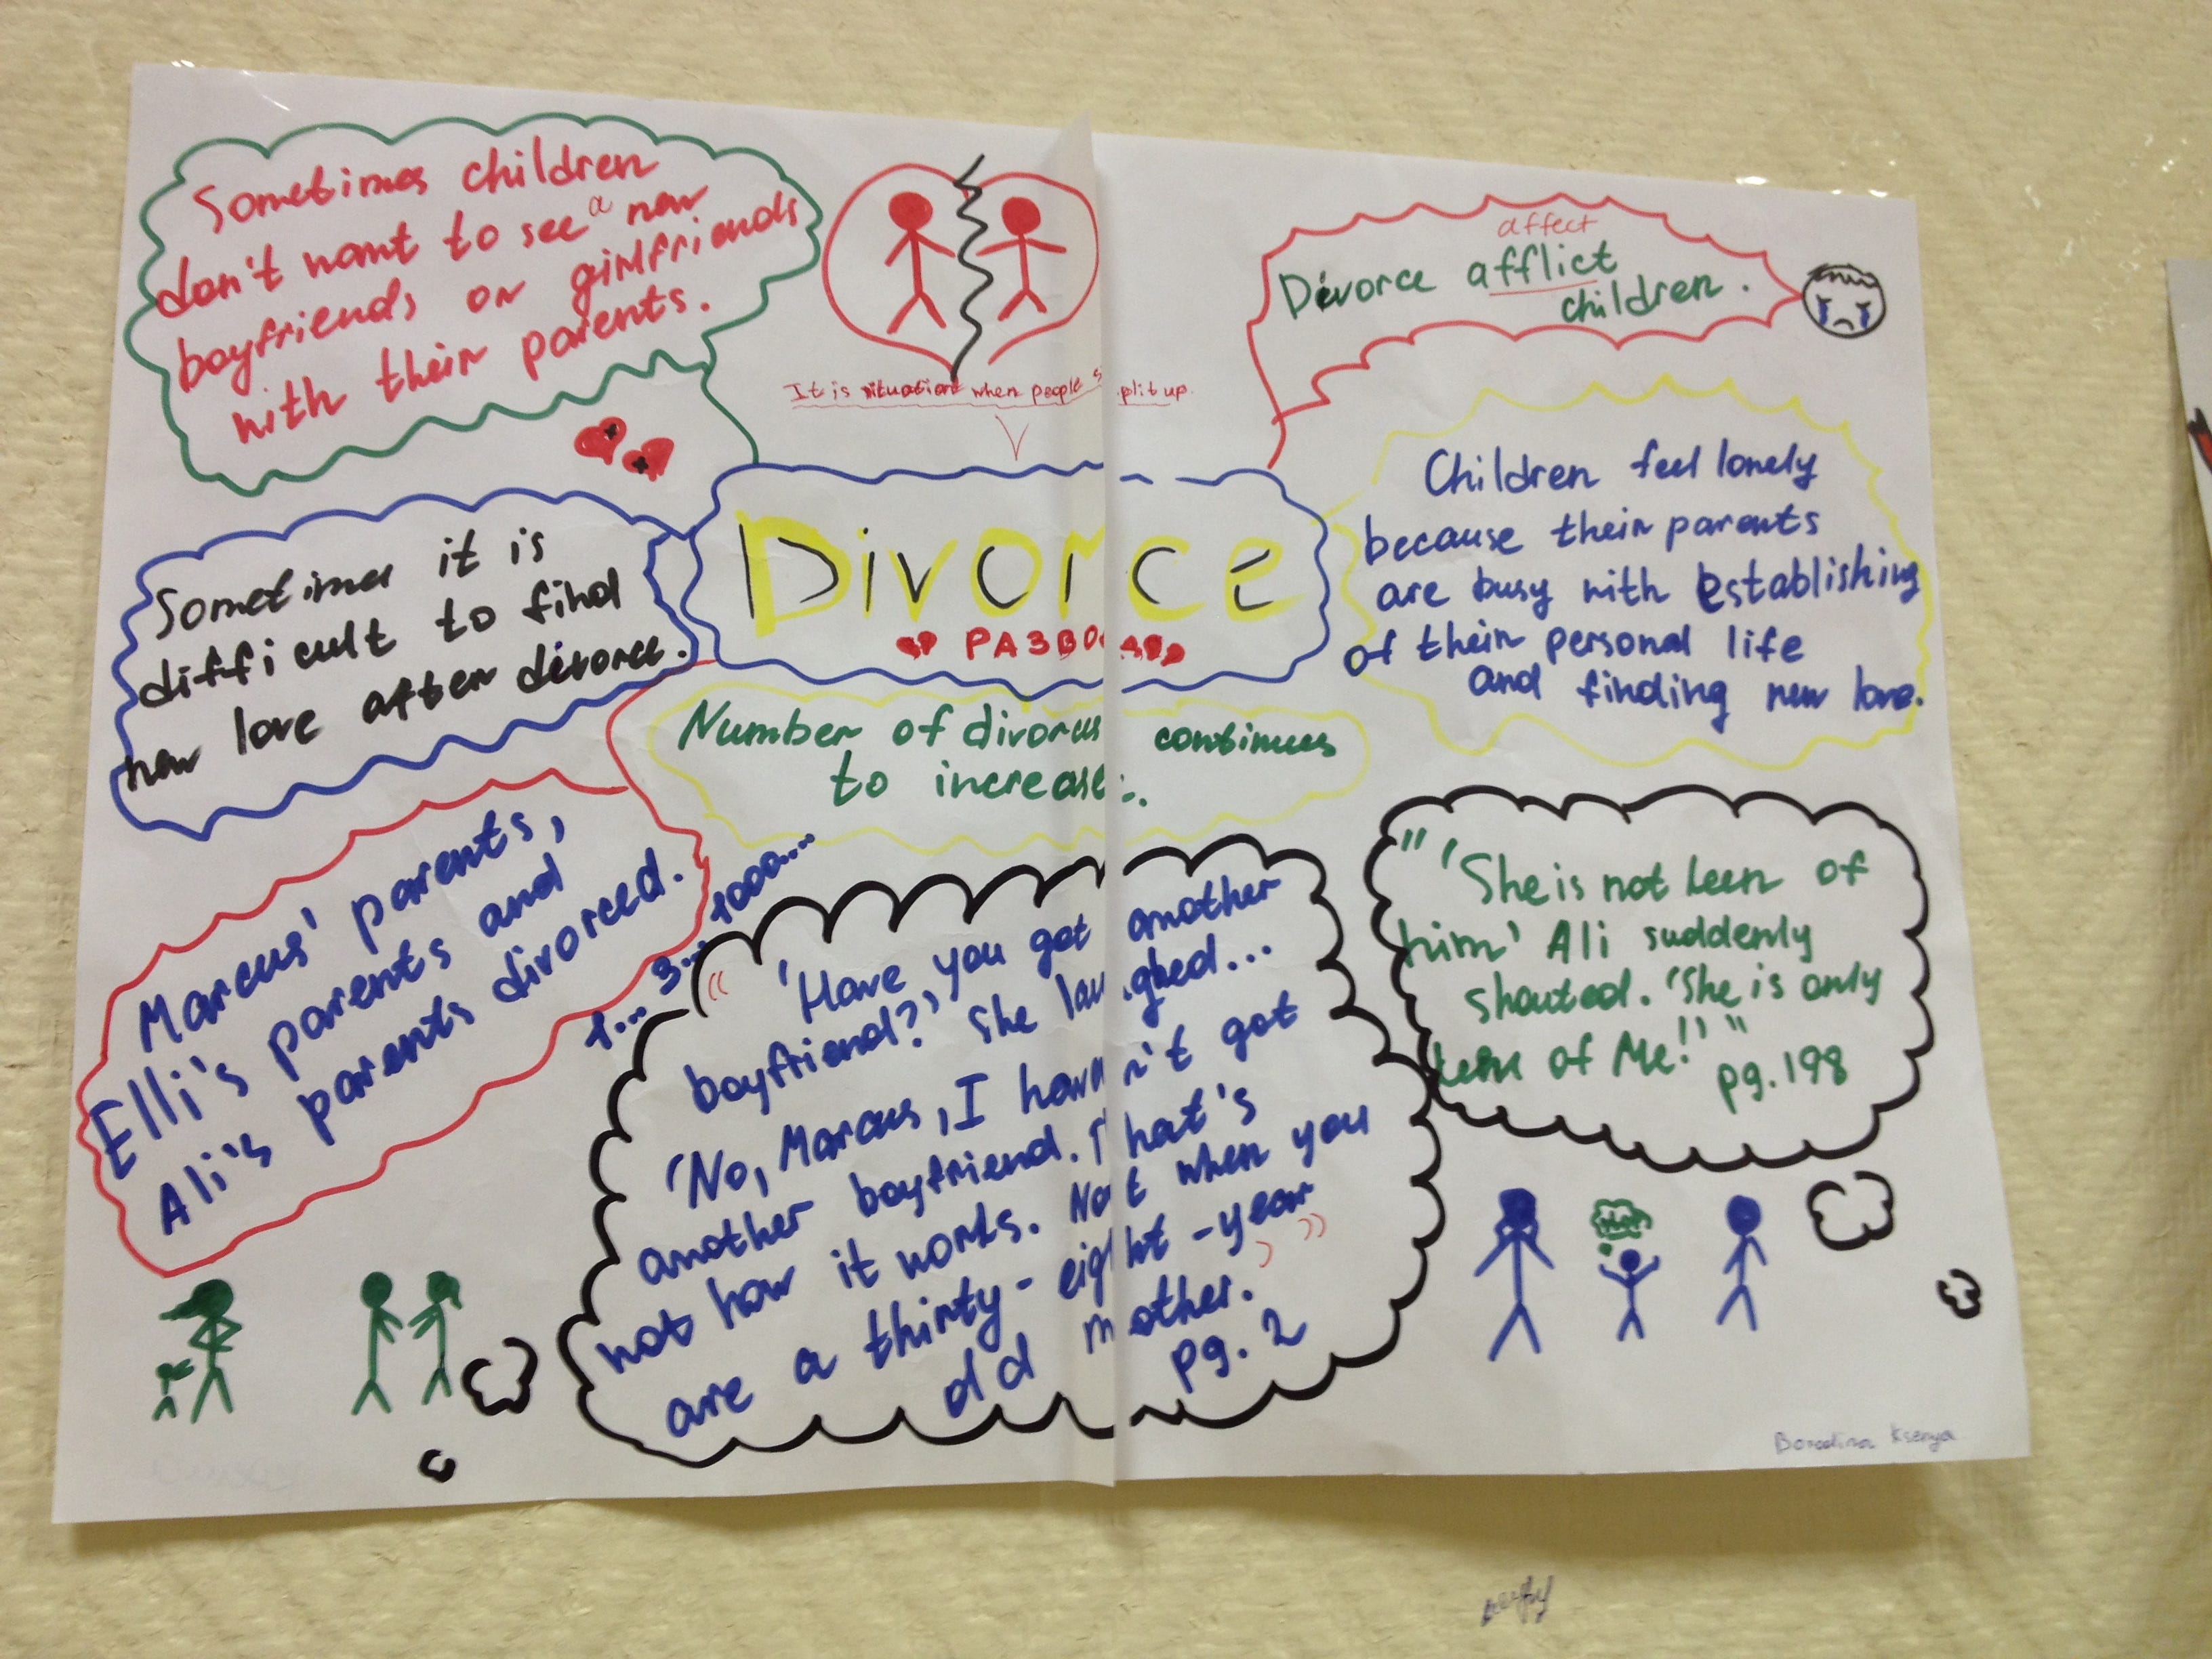 Sometimes children
don't want to see a new
boyfriends or girlfriends
with their parents.
It is situation when people split up.
affect
Divorce afflict
children.
Divorce
Children feel lonely
because their parents
are busy with establishing
of their personal life
and finding new love.
Sometimes it is
difficult to find
new love after divorce.
Number of divorces continues
to increase.
Marcus' parents,
Elli's parents and
Ali's parents divorced.
1... 3... 1000....
" 'Have you got another
boyfriend?' She laughed...
'No, Marcus, I haven't got
another boyfriend. That's
not how it works. Not when you
are a thirty-eight-year
old mother.' "
pg. 2
" 'She is not keen of
him' Ali suddenly
shouted. 'She is only
keen of Me!' "
pg. 198
Borodina Ksenya